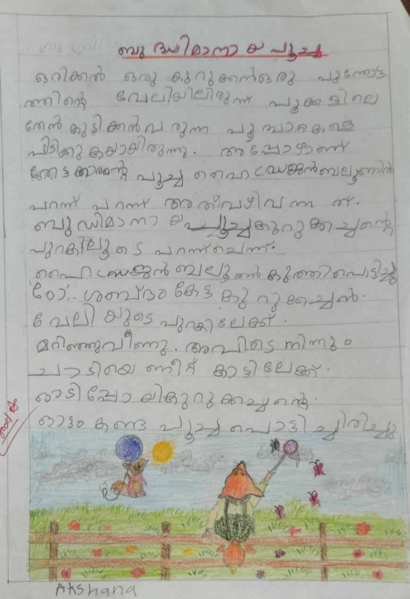 ബുദ്ധിമാനായ പൂച്ച
ഒരിക്കൽ ഒരു കുറുക്കൻ ഒരു പൂന്തോട്ട
ത്തിന്റെ വേലിയിലിരുന്ന് പൂക്കളിലെ
തേൻ കുടിക്കൻ വരുന്ന പൂമ്പാകളെ
പിടിക്കുകയായിരുന്നു. അപ്പോഴാണ്
തോട്ടക്കാരന്റെ പൂച്ച ഹൈഡ്രജൻ ബലൂണിൽ
പറന്ന് പറന്ന് അത് വഴി വന്നത്.
ബുഡിമാനായ പൂച്ച കുറുക്കച്ചന്റെ
പുറകിലൂടെ പറന്ന് ചെന്ന്.
ഹൈഡ്രജൻ ബലൂൺ കുത്തിപൊട്ടിച്ചു
ഠോ.. ശബ്ദം കേട്ട കുറുക്കച്ചൻ.
വേലിയുടെ പുറകിലേക്ക്.
മറിഞ്ഞുവീണു. അവിടെ നിന്നും
ചാടിയെണീറ്റ് കാട്ടിലേക്ക്.
ഓടിപ്പോയി കുറുക്കച്ചന്റെ.
ഓട്ടം കണ്ട പൂച്ച പൊട്ടിച്ചിരിച്ചു
Akshana